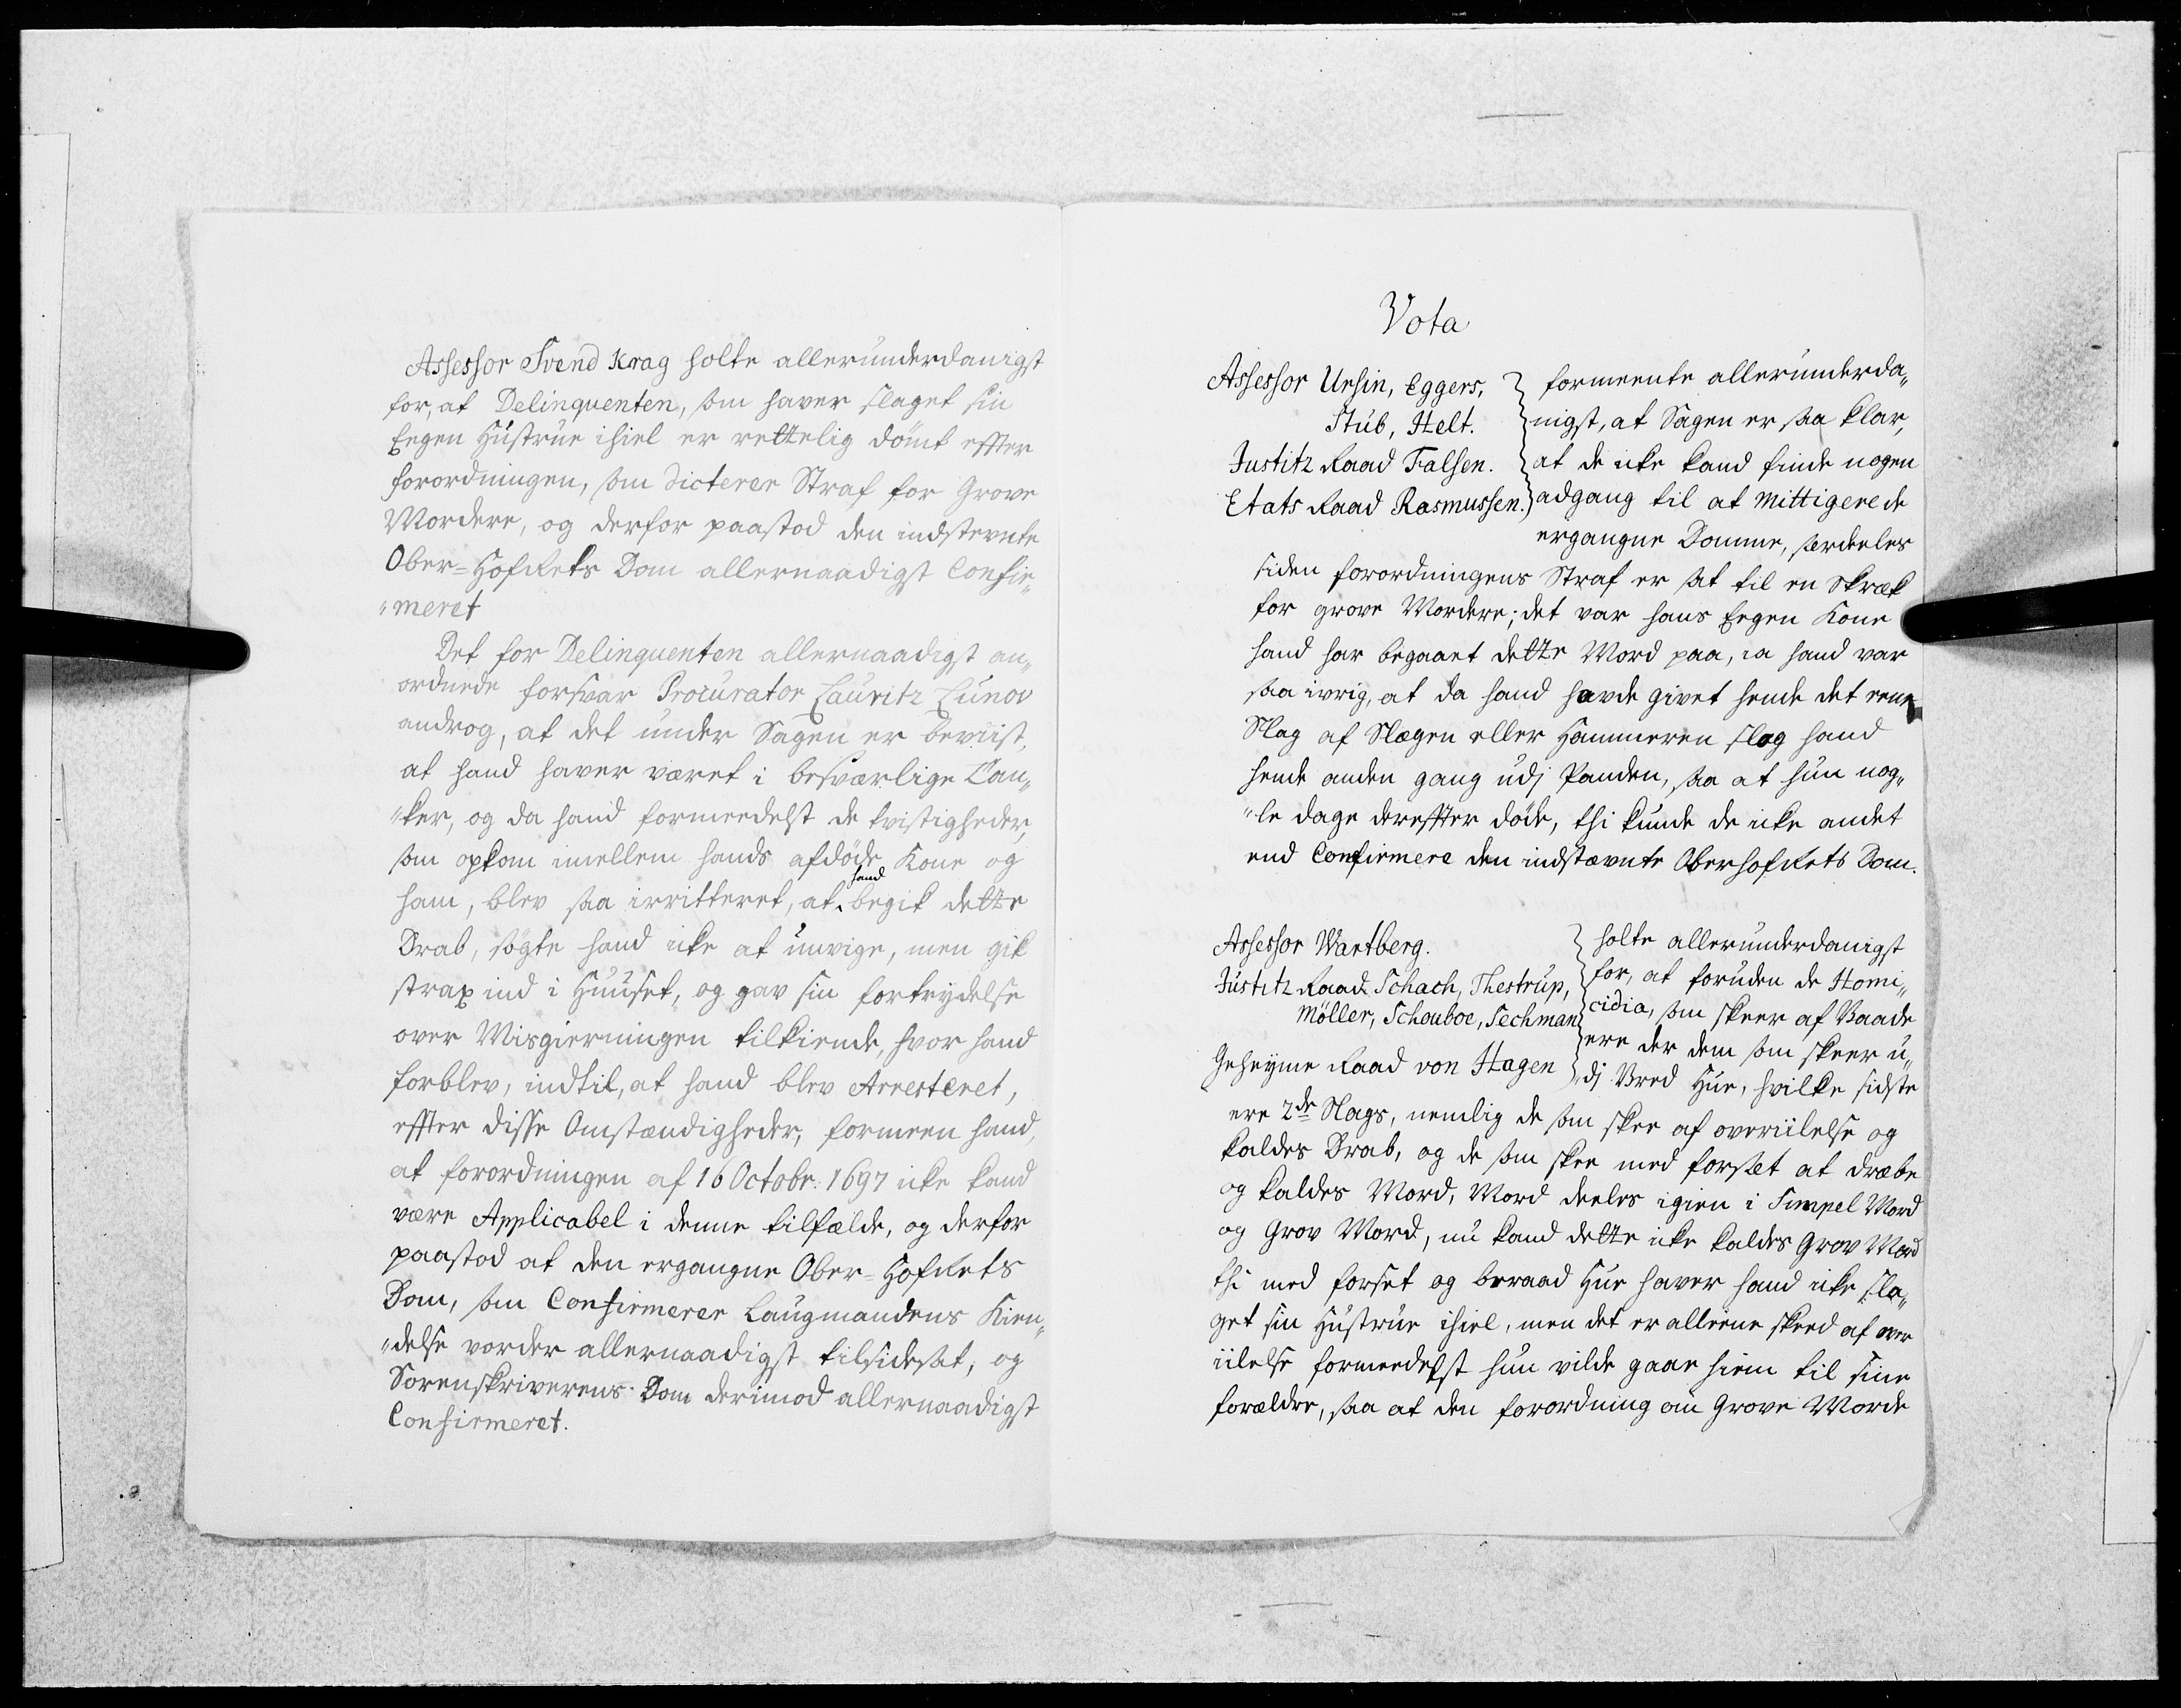 Assessor Svend Krag holte allerunderdanigst
for, at Delinquenten, som haver slaget sin
Eegen Hustrue ihiel er rettelig dömt effter
forordningen, som dicterer Straf for Grove
Mordere, og derfor paastod den indstevnte
Ober-HofRets Dom allernaadigst Confir„
„meret
Det for Delinquenten allernaadigst an„
ordnede forsvar Procurator Lauritz Lunov
androg, at det under Sagen er beviist,
at hand haver været i besværlige Tan„
„ker, og da hand formeedelst de tvistigheder,
som opkom imellem hands afdöde Kone og
ham, blev saa irritteret, at hand begik dette
Drab, sögte hand icke at unvige, men gik
strax ind i Huuset, og gav sin fortrydelse
over Misgierningen tilkiende, hvor hand
forblev, indtil, at hand blev Arresteret,
effter disse Omstændigheder, formeen hand,
at forordningen af 16 Octobr. 1697 icke kand
være Applicabel i denne tilfælde, og derfor
paastod at den ergangne Ober-HofRets
Dom, som Confirmerer Laugmandens Kien„
„delse vorder allernaadigst tilsidesat, og
Sorenskriverens Dom derimod allernaadigst
Confirmeret.
Vota
Assessor Ursin, Eggers,
Stub, Helt.
Justitz Raad Falsen.
Etats Raad Rasmussen.
formeente allerunderda„
nigst, at Sagen er saa klar,
at de icke kand finde nogen
adgang til at Mittigere de
ergangne Domme, særdeeles
siden forordningens Straf er sat til en Skræk
for grove Mordere; det var hans Eegen Kone
hand har begaaet dette Mord paa, ia hand var
saa ivrig, at da hand havde givet hende det eene
Slag af Slægen eller Hammeren slog hand
hende anden gang udj Panden, saa at hun nog„
„le dage dereffter döde, thi kunde de icke andet
end Confirmere den indstævnte OberhofRets Dom.
Assessor Wartberg.
Justitz Raad Schach, Thestrup,
Möller, Schouboe, Techman
Geheyme Raad von Hagen
holte allerunderdanigst
for, at foruden de Homi„
cidia, som skeer af Vaade
ere der dem som skeer u„
„dj Vred Hue, hvilke sidste
ere 2de Slags, nemlig de som skee af overiilelse og
kaldes Drab, og de som skee med forsæt at dræbe
og kaldes Mord, Mord deeles igien i Simpel Mord
og Grov Mord, nu kand dette icke kaldes Grov Mord
thi med forset og beraad Hue haver hand icke sla„
get sin Hustrue ihiel, men det er alleene skeed af over
iilelse formeedelst hun vilde gaae hiem til sine
forældre, saa at den forordning om Grove Morde